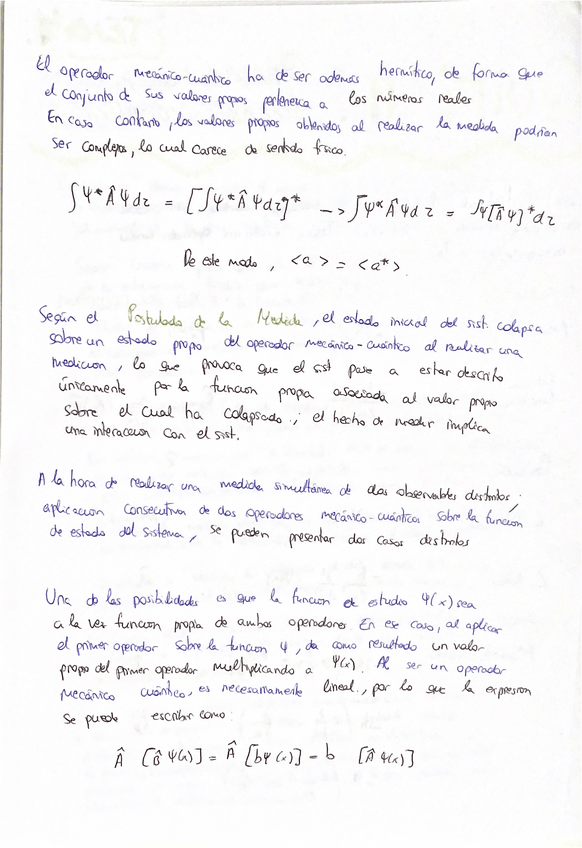 El operador mecánico-cuántico ha de ser además hermítico, de forma que
el conjunto de sus valores propios pertenezca a los números reales
En caso contrario, los valores propios obtenidos al realizar la medida podrían
ser complejos, lo cual carece de sentido físico.
∫Ψ* Â Ψ dτ = [∫Ψ* Â Ψ dτ]* --> ∫Ψ* Â Ψ dτ = ∫Ψ[Â Ψ]* dτ
De este modo, <a> = <a*>.
Según el Postulado de la Medida, el estado inicial del sist. colapsa
sobre un estado propio del operador mecánico-cuántico al realizar una
medicion, lo que provoca que el sist pase a estar descrito
únicamente por la funcion propia asociada al valor propio
sobre el cual ha colapsado; el hecho de medir implica
una interaccion con el sist.
A la hora de realizar una medida simultánea de dos observables distintos;
aplicacion consecutiva de dos operadores mecánico-cuánticos sobre la funcion
de estado del sistema, se pueden presentar dos casos distintos
Una de las posibilidades es que la funcion de estudio Ψ(x) sea
a la vez funcion propia de ambos operadores. En ese caso, al aplicar
el primer operador sobre la funcion Ψ, da como resultado un valor
propio del primer operador multiplicando a Ψ(x). Al ser un operador
mecánico cuántico, es necesariamente lineal, por lo que la expresion
se puede escribir como:
Â [B̂ Ψ(x)] = Â [bΨ(x)] = b [Â Ψ(x)]